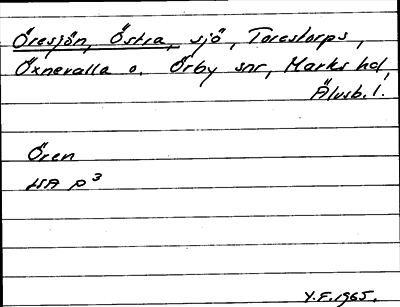 Öresjön, Östra, sjö, Torestorps,
Öxnevalla o. Örby snr, Marks hd,
Älvsb. l.
Ören
HA p³
Y.F. 1965.